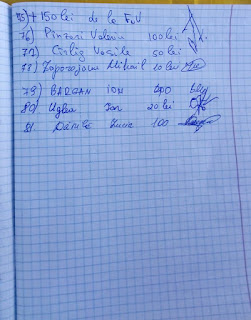 75) + 150 lei de la FoV
76) Pînzari Valeriu 100 lei
77) Cîrlig Vasile 50 lei
77) Zaporojanu Mihail 20 lei
79) BARGAN ION 200
80. Uglea Ion 20 lei
81. Dănilă 100